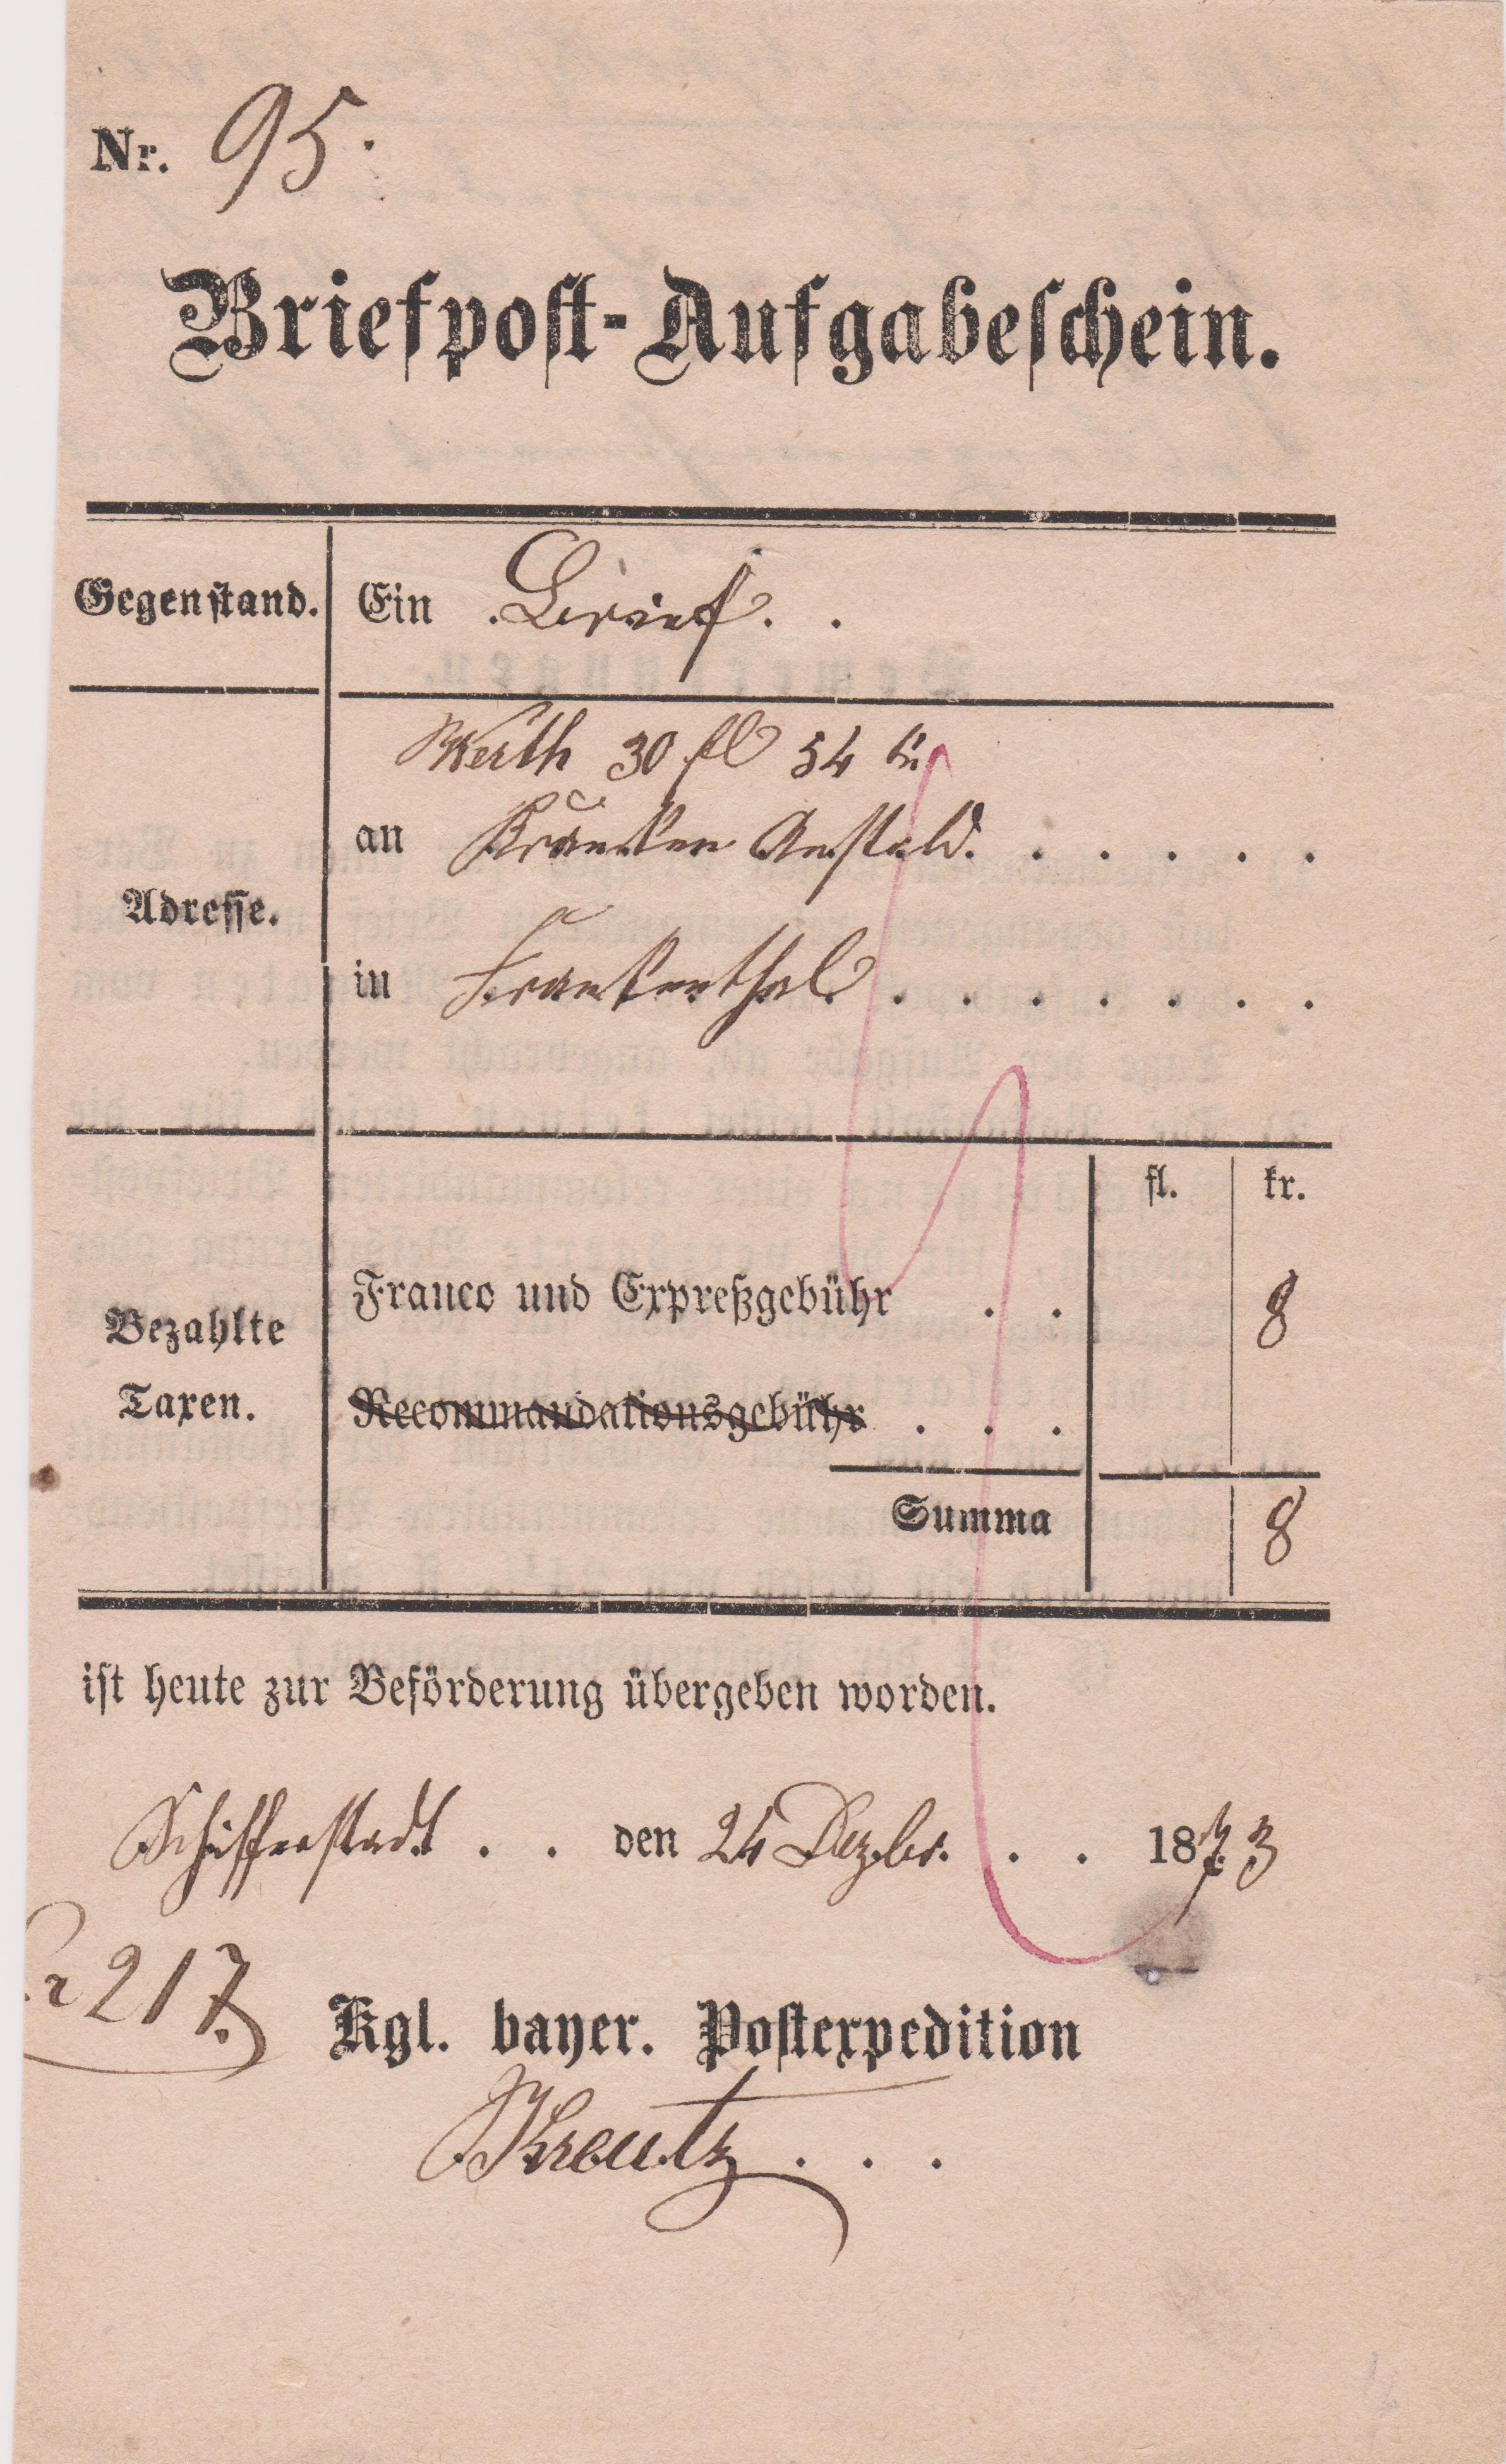 Nr. 95.
Briefpost-Aufgabeschein.
Gegenstand. Ein Brief.
Werth 30 fl 54 kr
an Kranken Anstald.
Adresse.
in Frankenthal
fl. kr.
Franco und Expreßgebühr . . 8
Bezahlte
Taxen. Recommandationsgebühr . . .
Summa 8
ist heute zur Beförderung übergeben worden.
Schifferstadt . . den 24 Dezbr. . . 1873
217.
Kgl. bayer. Postexpedition
Kreutz . . .